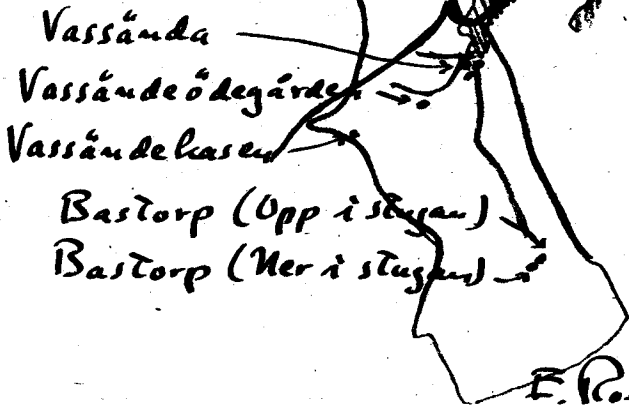 Vassända
Vassändeödegården
Vassändekasen
Bastorp (Opp i stugan)
Bastorp (Ner i stugan)
E. R.